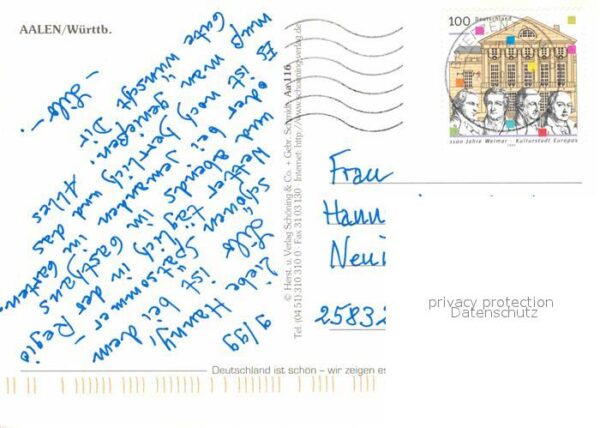 AALEN/Württb.
9/99
Liebe Hanny,
Lilo ist bei dem
schönen Spätsommer-
Wetter täglich in der Regio
und abends in Gasthaus
oder bei jemanden im Garten.
Es ist noch herrlich und das
muß man genießen. Alles
Gute wünscht Dir
- Lilo -
© Herst. u. Verlag Schöning & Co. + Gebr. Schmidt, Aa 116
Tel. (04 51) 310 310 0 · Fax 31 03 130 · Internet: http://www.schoeningverlag.de
100 Deutschland
1100 Jahre Weimar - Kulturstadt Europas
1999
Frau
Hann
Neui
25832
privacy protection
Datenschutz
Deutschland ist schön – wir zeigen es